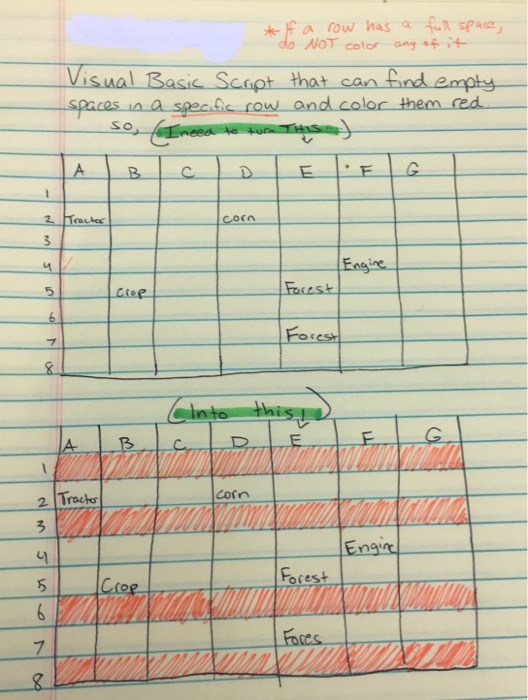 * If a row has a full space,
do NOT color any of it
Visual Basic Script that can find empty
spaces in a specific row and color them red.
so, (I need to turn THIS...)
A B C D E F G
1
2 Tractor corn
3
4 Engine
5 Crop Forest
6
7 Forest
8
(Into this!)
A B C D E F G
1
2 Tractor corn
3
4 Engine
5 Crop Forest
6
7 Fores
8